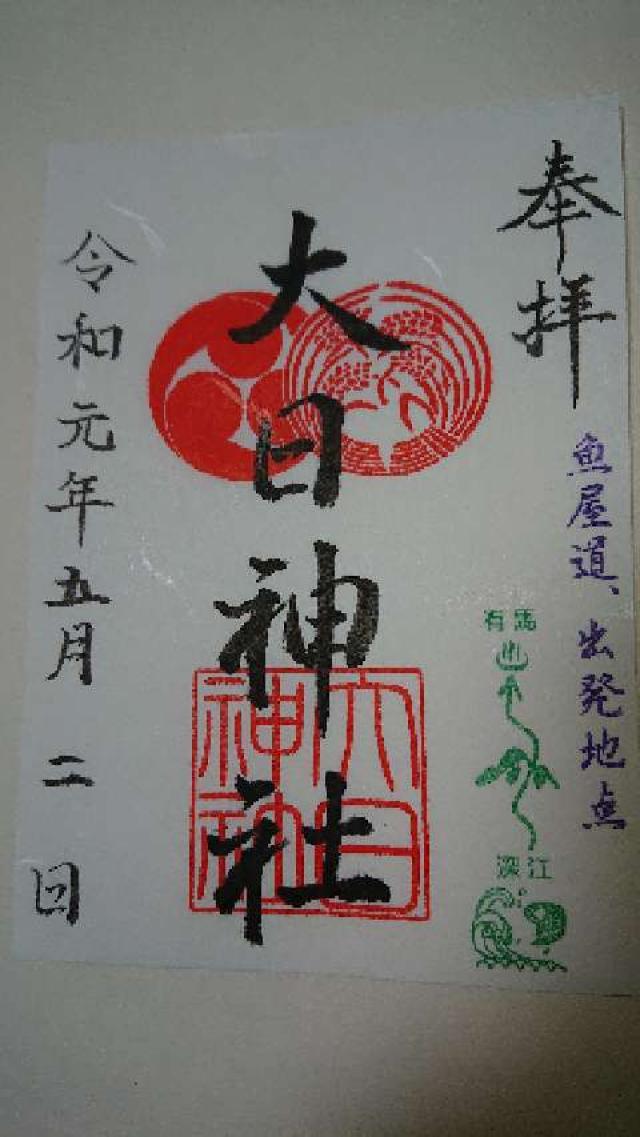 奉拝
魚屋道、出発地点
有馬
深江
大日神社
大日
神社
令和元年五月二日